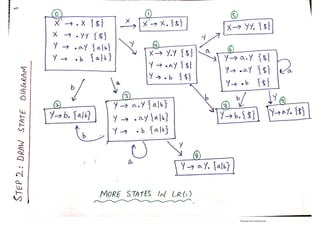 STEP 2: DRAW STATE DIAGRAM
0
X' → .X {$}
X → .YY {$}
Y → .aY {a|b}
Y → .b {a|b}
X
1
X' → X. {$}
Y
X → Y.Y {$}
Y → .aY {$}
Y → .b {$}
Y
5
X → YY. {$}
a
6
Y → a.Y {$}
Y → .aY {$}
Y → .b {$}
a
b
b
Y
Y → b. {$}
9
Y → aY. {$}
b
a
Y → b. {a|b}
3
Y → a.Y {a|b}
Y → .aY {a|b}
Y → .b {a|b}
b
a
Y
8
Y → aY. {a|b}
MORE STATES IN LR(1)